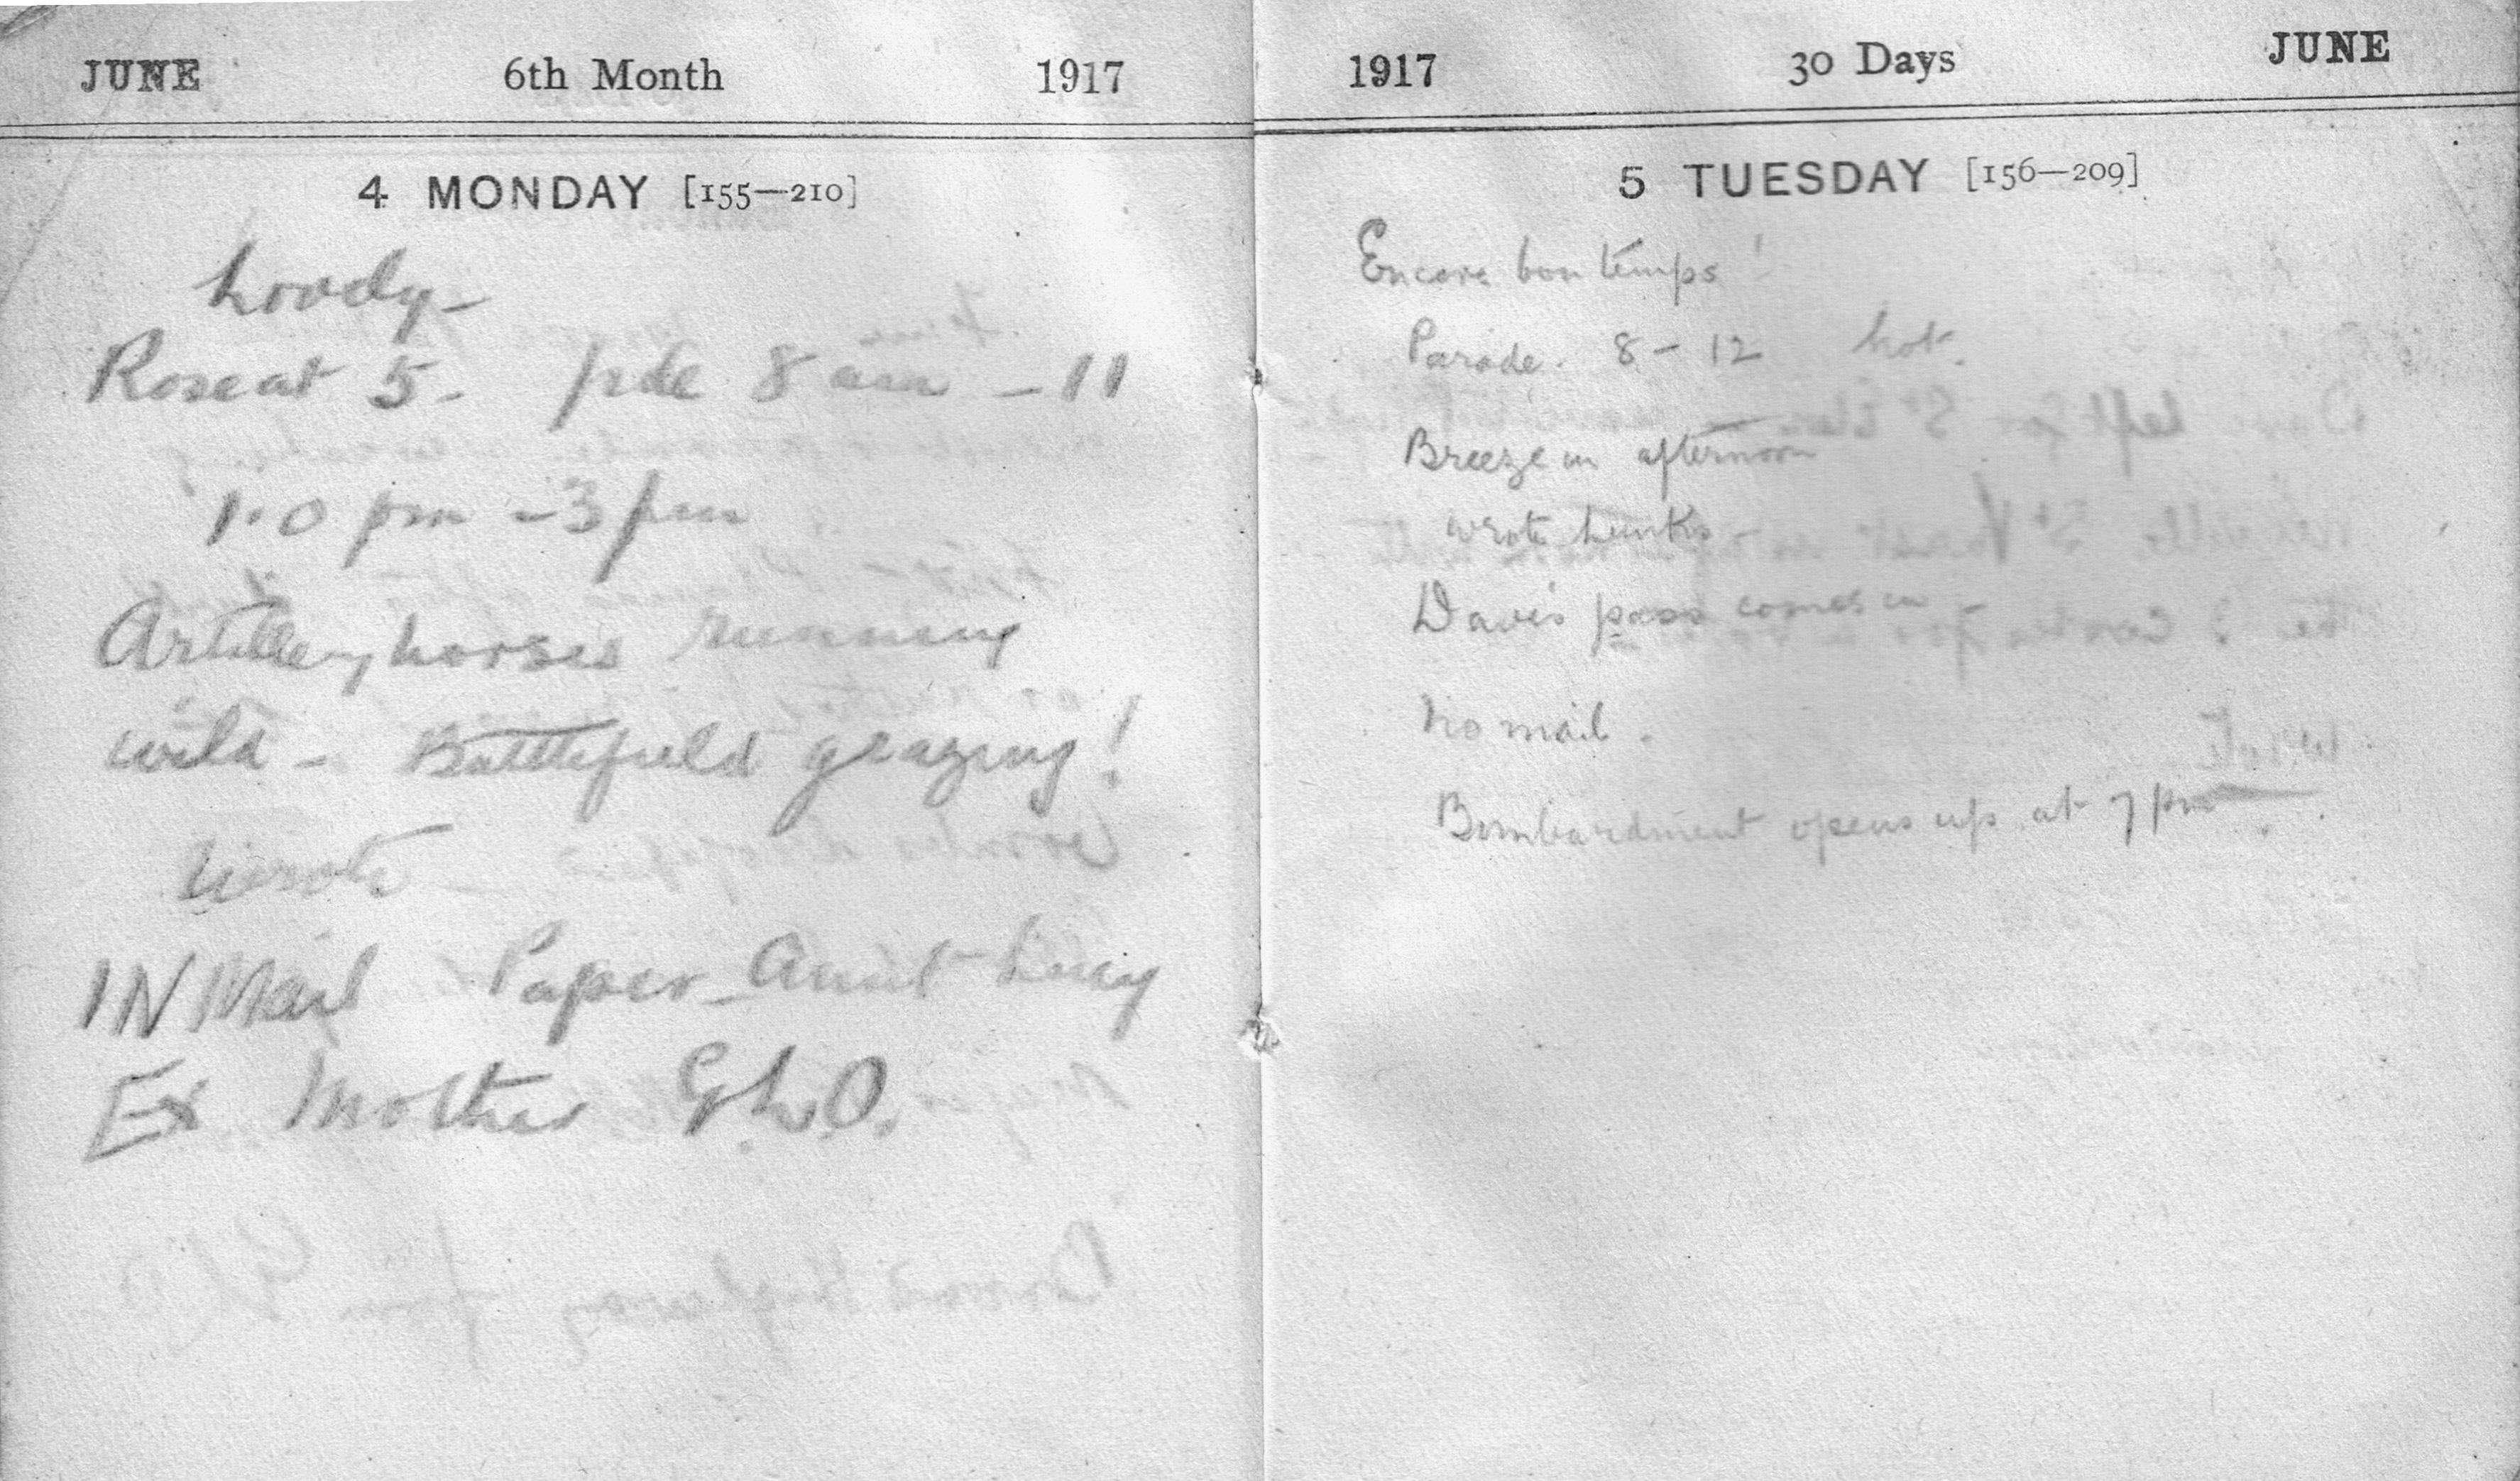 JUNE 6th Month 1917
4 MONDAY [155—210]
Rose at 5. pde 8 am - 11
1.0 pm - 3 pm
Artillery horses running
wild - Battlefield grazing!
Wrote -
IN Mail Paper Aunt Lucy
Ex Mother G.L.O.
1917 30 Days JUNE
5 TUESDAY [156—209]
Encore bon temps!
Parade. 8 - 12 hot.
Breeze in afternoon
wrote
Davis pass comes in -
No mail.
Bombardment opens up at 7 pm